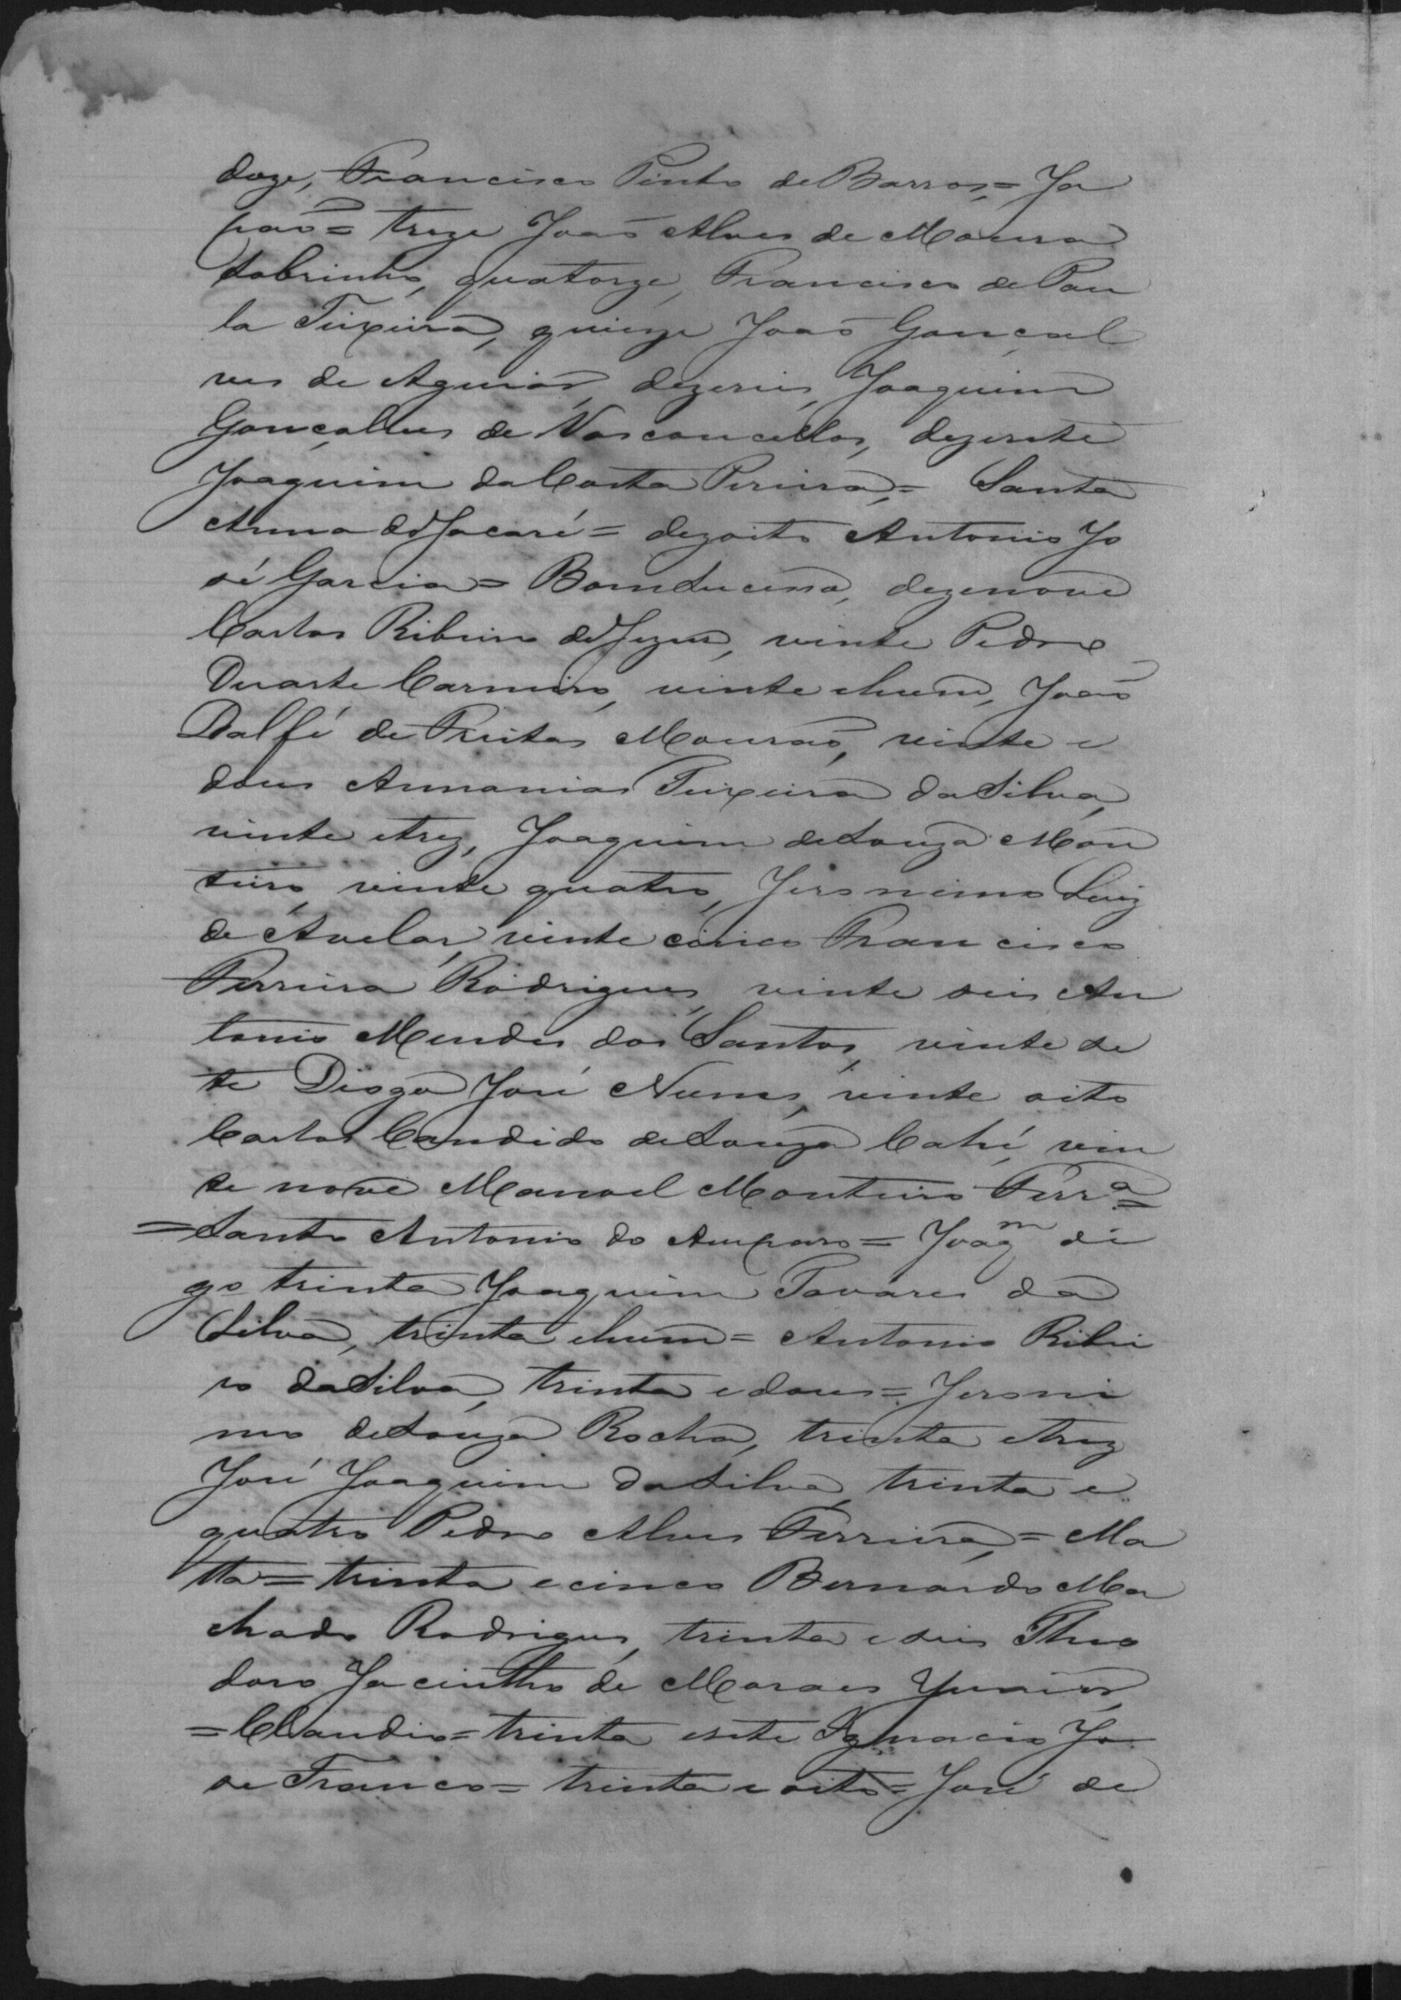 doze, Francisco Pinto de Barros,= Ja
paõ= treze Joaõ Alves de Moura
Sobrinho, quatorze, Francisco de Pau
la Teixeira, quinze Joaõ Gonçal
ves de Aguiar, dezeseis, Joaquim
Gonçalves de Vasconcellos, dezesete
Joaquim da Costa Pereira,= Santa
Anna do Jacaré= dezoito Antonio Jo
sé Garcia= Bom Sucesso, dezenove
Carlos Ribeiro de Jezus, vinte Pedro
Duarte Carneiro, vinte ehum, Joaõ
Dalfé de Freitas Mouraõ, vinte e
dous Annanias Teixeira da Silva,
vinte etrez, Joaquim de Souza Mon
teiro, vinte quatro, Jeronimo Luiz
de Avelar, vinte cinco Francisco
Ferreira Rodrigues, vinte seis An
tonio Mendes dos Santos, vinte se
te Diogo José Nunes, vinte oito
Carlos Candido de Souza Cahé, vin
te nove Manoel Monteiro Ferrª=
=Santo Antonio do Amparo= Joaqm di
go trinta Joaquim Tavares da
Silva, trinta ehum= Antonio Ribei
ro da Silva, trinta e dous= Jeroni
mo de Souza Rocha, trinta etrez
José Joaquim da Silva, trinta e
quatro Pedro Alves Ferreira,= Ma
tta= trinta e cinco Bernardo Ma
chado Rodrigues, trinta e seis Theo
doro Jacintho de Moraes Junior,
=Claudio= trinta esete Ignacio Jo
se Franco= trinta e oito= José de